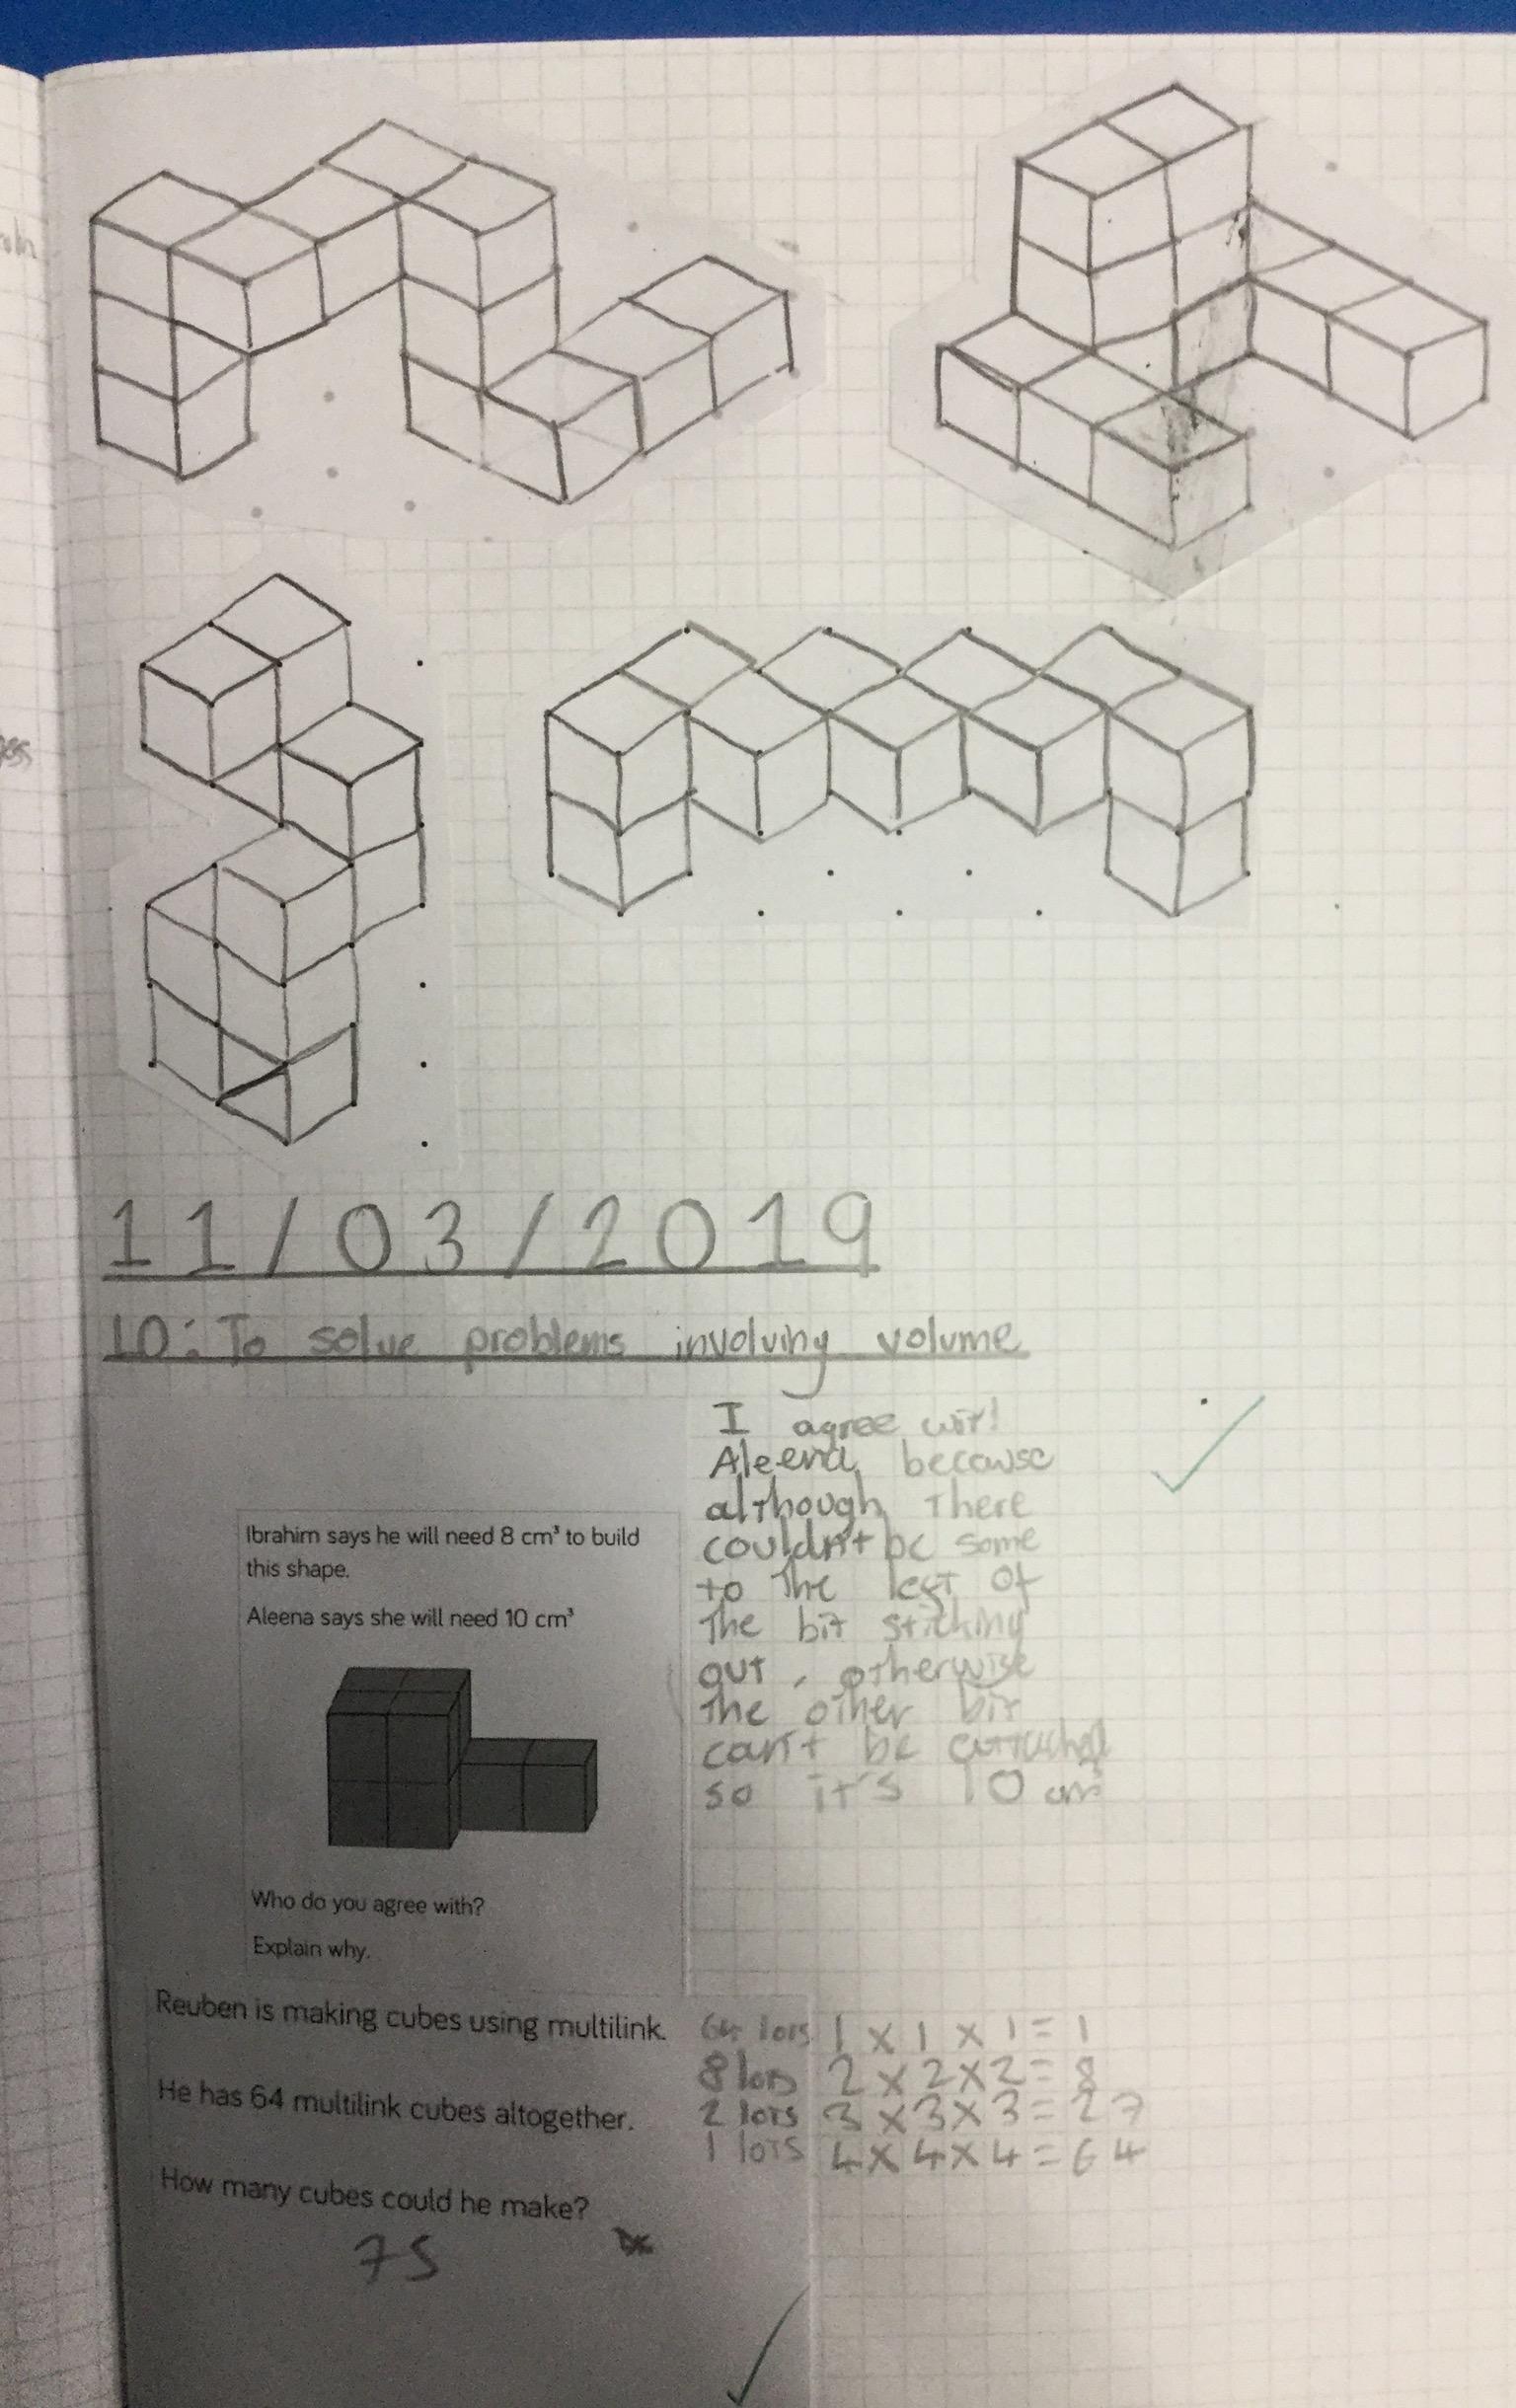 11/03/2019
LO: To solve problems involving volume
I agree wit!
Aleena because
although There
couldn't be some
to The left of
The bit sticking
out, otherwise
The other bit
can't be attached
so it's 10 cm³
Ibrahim says he will need 8 cm³ to build
this shape.
Aleena says she will need 10 cm³
Who do you agree with?
Explain why.
Reuben is making cubes using multilink.
He has 64 multilink cubes altogether.
How many cubes could he make?
75
64 lots 1 x 1 x 1 = 1
8 lots 2 x 2 x 2 = 8
2 lots 3 x 3 x 3 = 27
1 lots 4 x 4 x 4 = 64